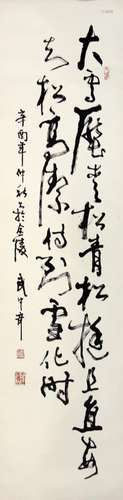 大雪壓青松青松挺且直要
知松高潔待到雪化時
辛酉年仲秋書於金陵 武中奇